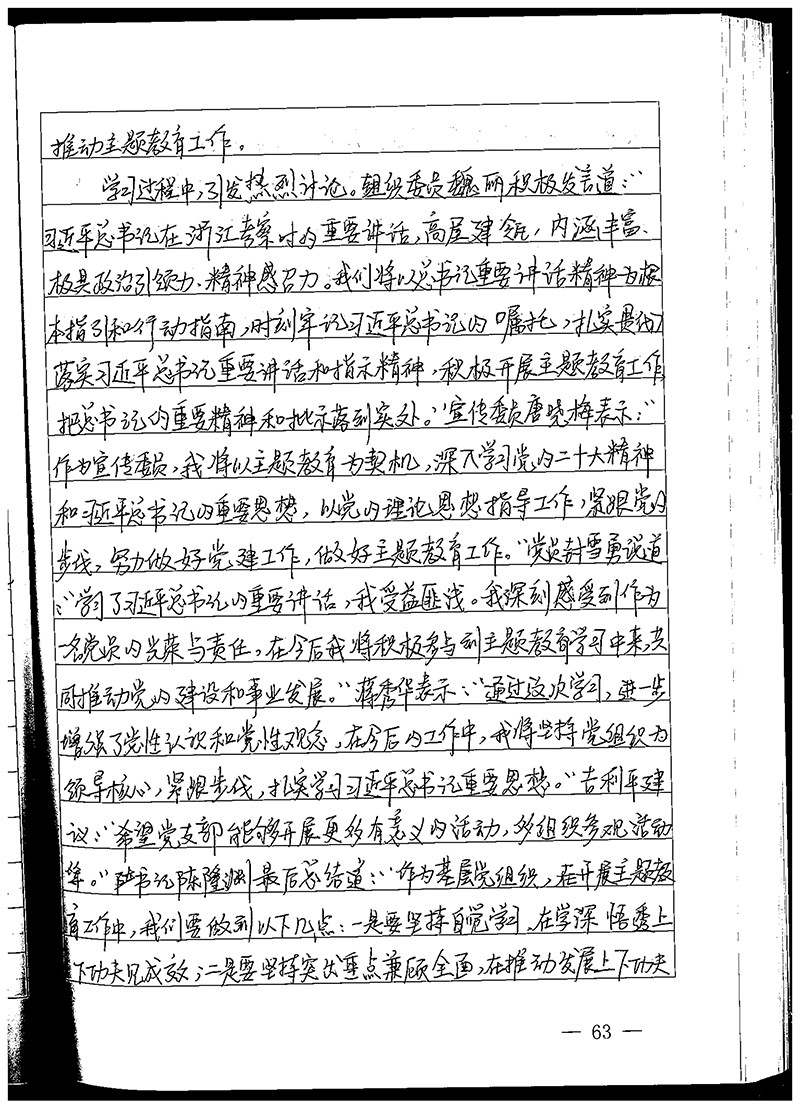 推动主题教育工作。
学习过程中,引发热烈讨论。组织委员魏丽积极发言道:“
习近平总书记在浙江考察时的重要讲话,高屋建瓴,内涵丰富、
极具政治引领力、精神感召力。我们将以总书记重要讲话精神为根
本指引和行动指南,时刻牢记习近平总书记的嘱托,扎实贯彻
落实习近平总书记重要讲话和指示精神,积极开展主题教育工作,
把总书记的重要精神和批示落到实处。”宣传委员唐晓梅表示:“
作为宣传委员,我将以主题教育为契机,深入学习党的二十大精神
和习近平总书记的重要思想,以党的理论思想指导工作,紧跟党的
步伐,努力做好党建工作,做好主题教育工作。”党员封雪勇说道
:“学习了习近平总书记的重要讲话,我受益匪浅。我深刻感受到作为
一名党员的光荣与责任,在今后我将积极参与到主题教育学习中来,共
同推动党的建设和事业发展。”蒋秀华表示:“通过这次学习,进一步
增强了党性认识和党性观念,在今后的工作中,我将坚持党组织为
领导核心,紧跟步伐,扎实学习习近平总书记重要思想。”吉利平建
议:“希望党支部能够开展更多有意义的活动,多组织参观活动
等。”书记陈隆渊最后总结道:“作为基层党组织,在开展主题教
育工作中,我们要做到以下几点:一是要坚持自觉学习,在学深悟透上
下功夫见成效;二是要坚持突出重点兼顾全面,在推动发展上下功夫
— 63 —